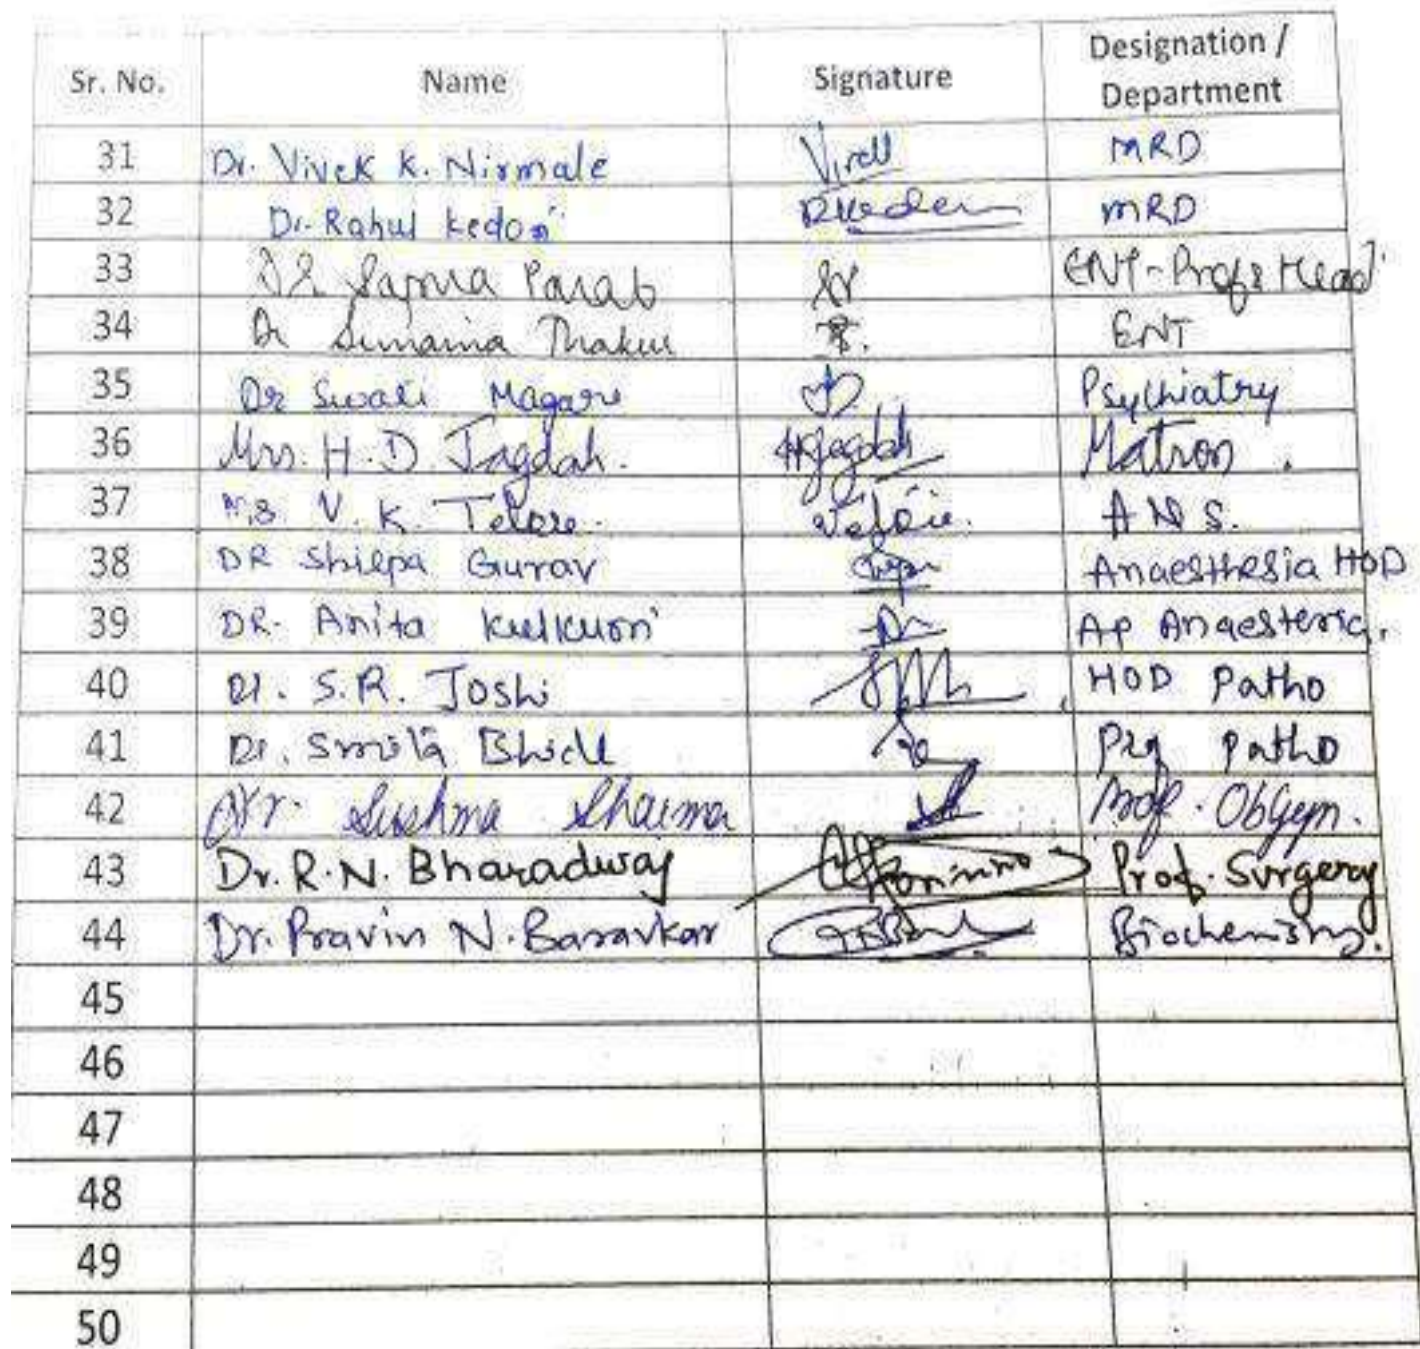 Sr. No. Name Signature Designation / Department
31 Dr. Vivek K. Nirmale MRD
32 Dr. Rahul Kedari MRD
33 Dr Sapna Parab ENT - Prof & Head
34 Dr Sunaina Thakur ENT
35 Dr Swali Magare Psychiatry
36 Mrs. H. D. Jagdah. HJagdah Matron.
37 V. K. Telore. A N S.
38 DR Shilpa Gurav Anaesthesia HOD
39 DR. Anita Kulkurni AP Anaesteria.
40 Dr. S.R. Joshi HOD Patho
41 Dr. Smita Bhide Prof Patho
42 Dr. Sushma Sharma Prof. ObGyn.
43 Dr. R. N. Bharadwaj Prof. Surgery
44 Dr. Pravin N. Baravkar Biochemistry.
45
46
47
48
49
50